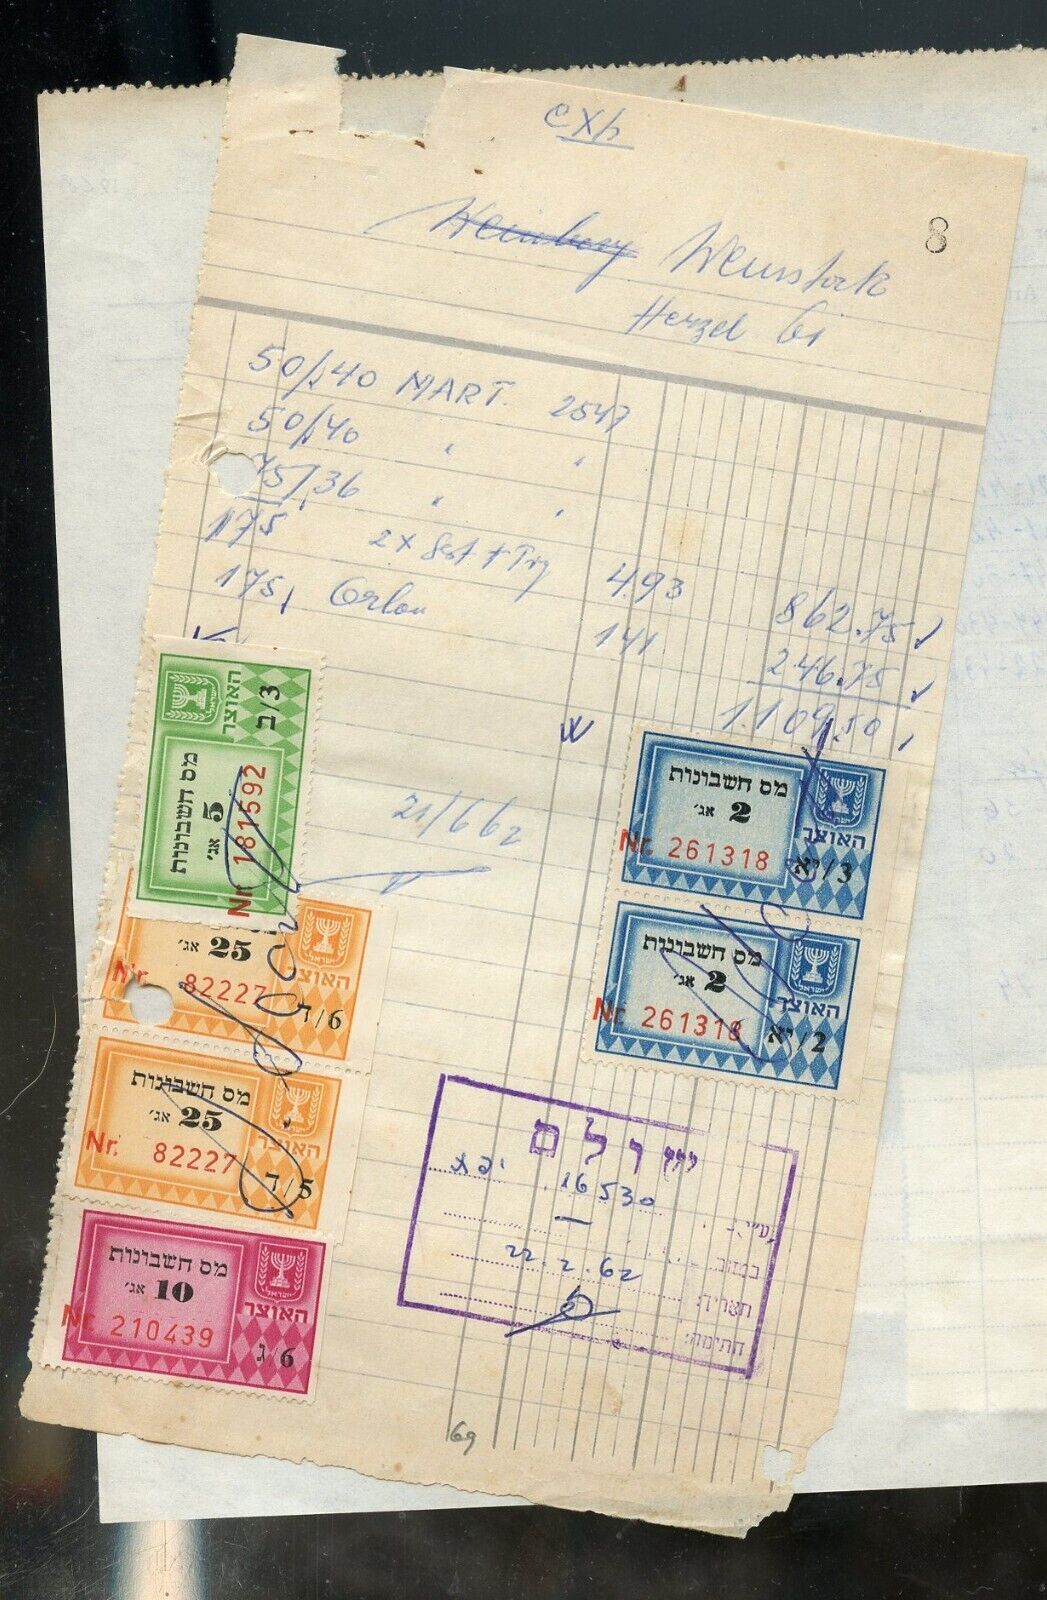 8
Weinberg Weinstock
Herzel 61
50/40 MART. 2547
50/40 " "
75/36 " "
175 2x 4.93 862.75
175 Orlon 141 246.75
1.109.50
21/6 62
האוצר
3/ב
מס חשבונות
5 אג׳
Nr. 181592
25 אג׳
Nr. 82227
האוצר
6/ד
מס חשבונות
25 אג׳
Nr. 82227
האוצר
5/ד
מס חשבונות
10 אג׳
Nr. 210439
האוצר
6/ג
מס חשבונות
2 אג׳
Nr. 261318
האוצר
3/יא
מס חשבונות
2 אג׳
Nr. 261318
ישראל
האוצר
2/יא
שולם
16530
22.2.62
תאריך:
חתימה:
69